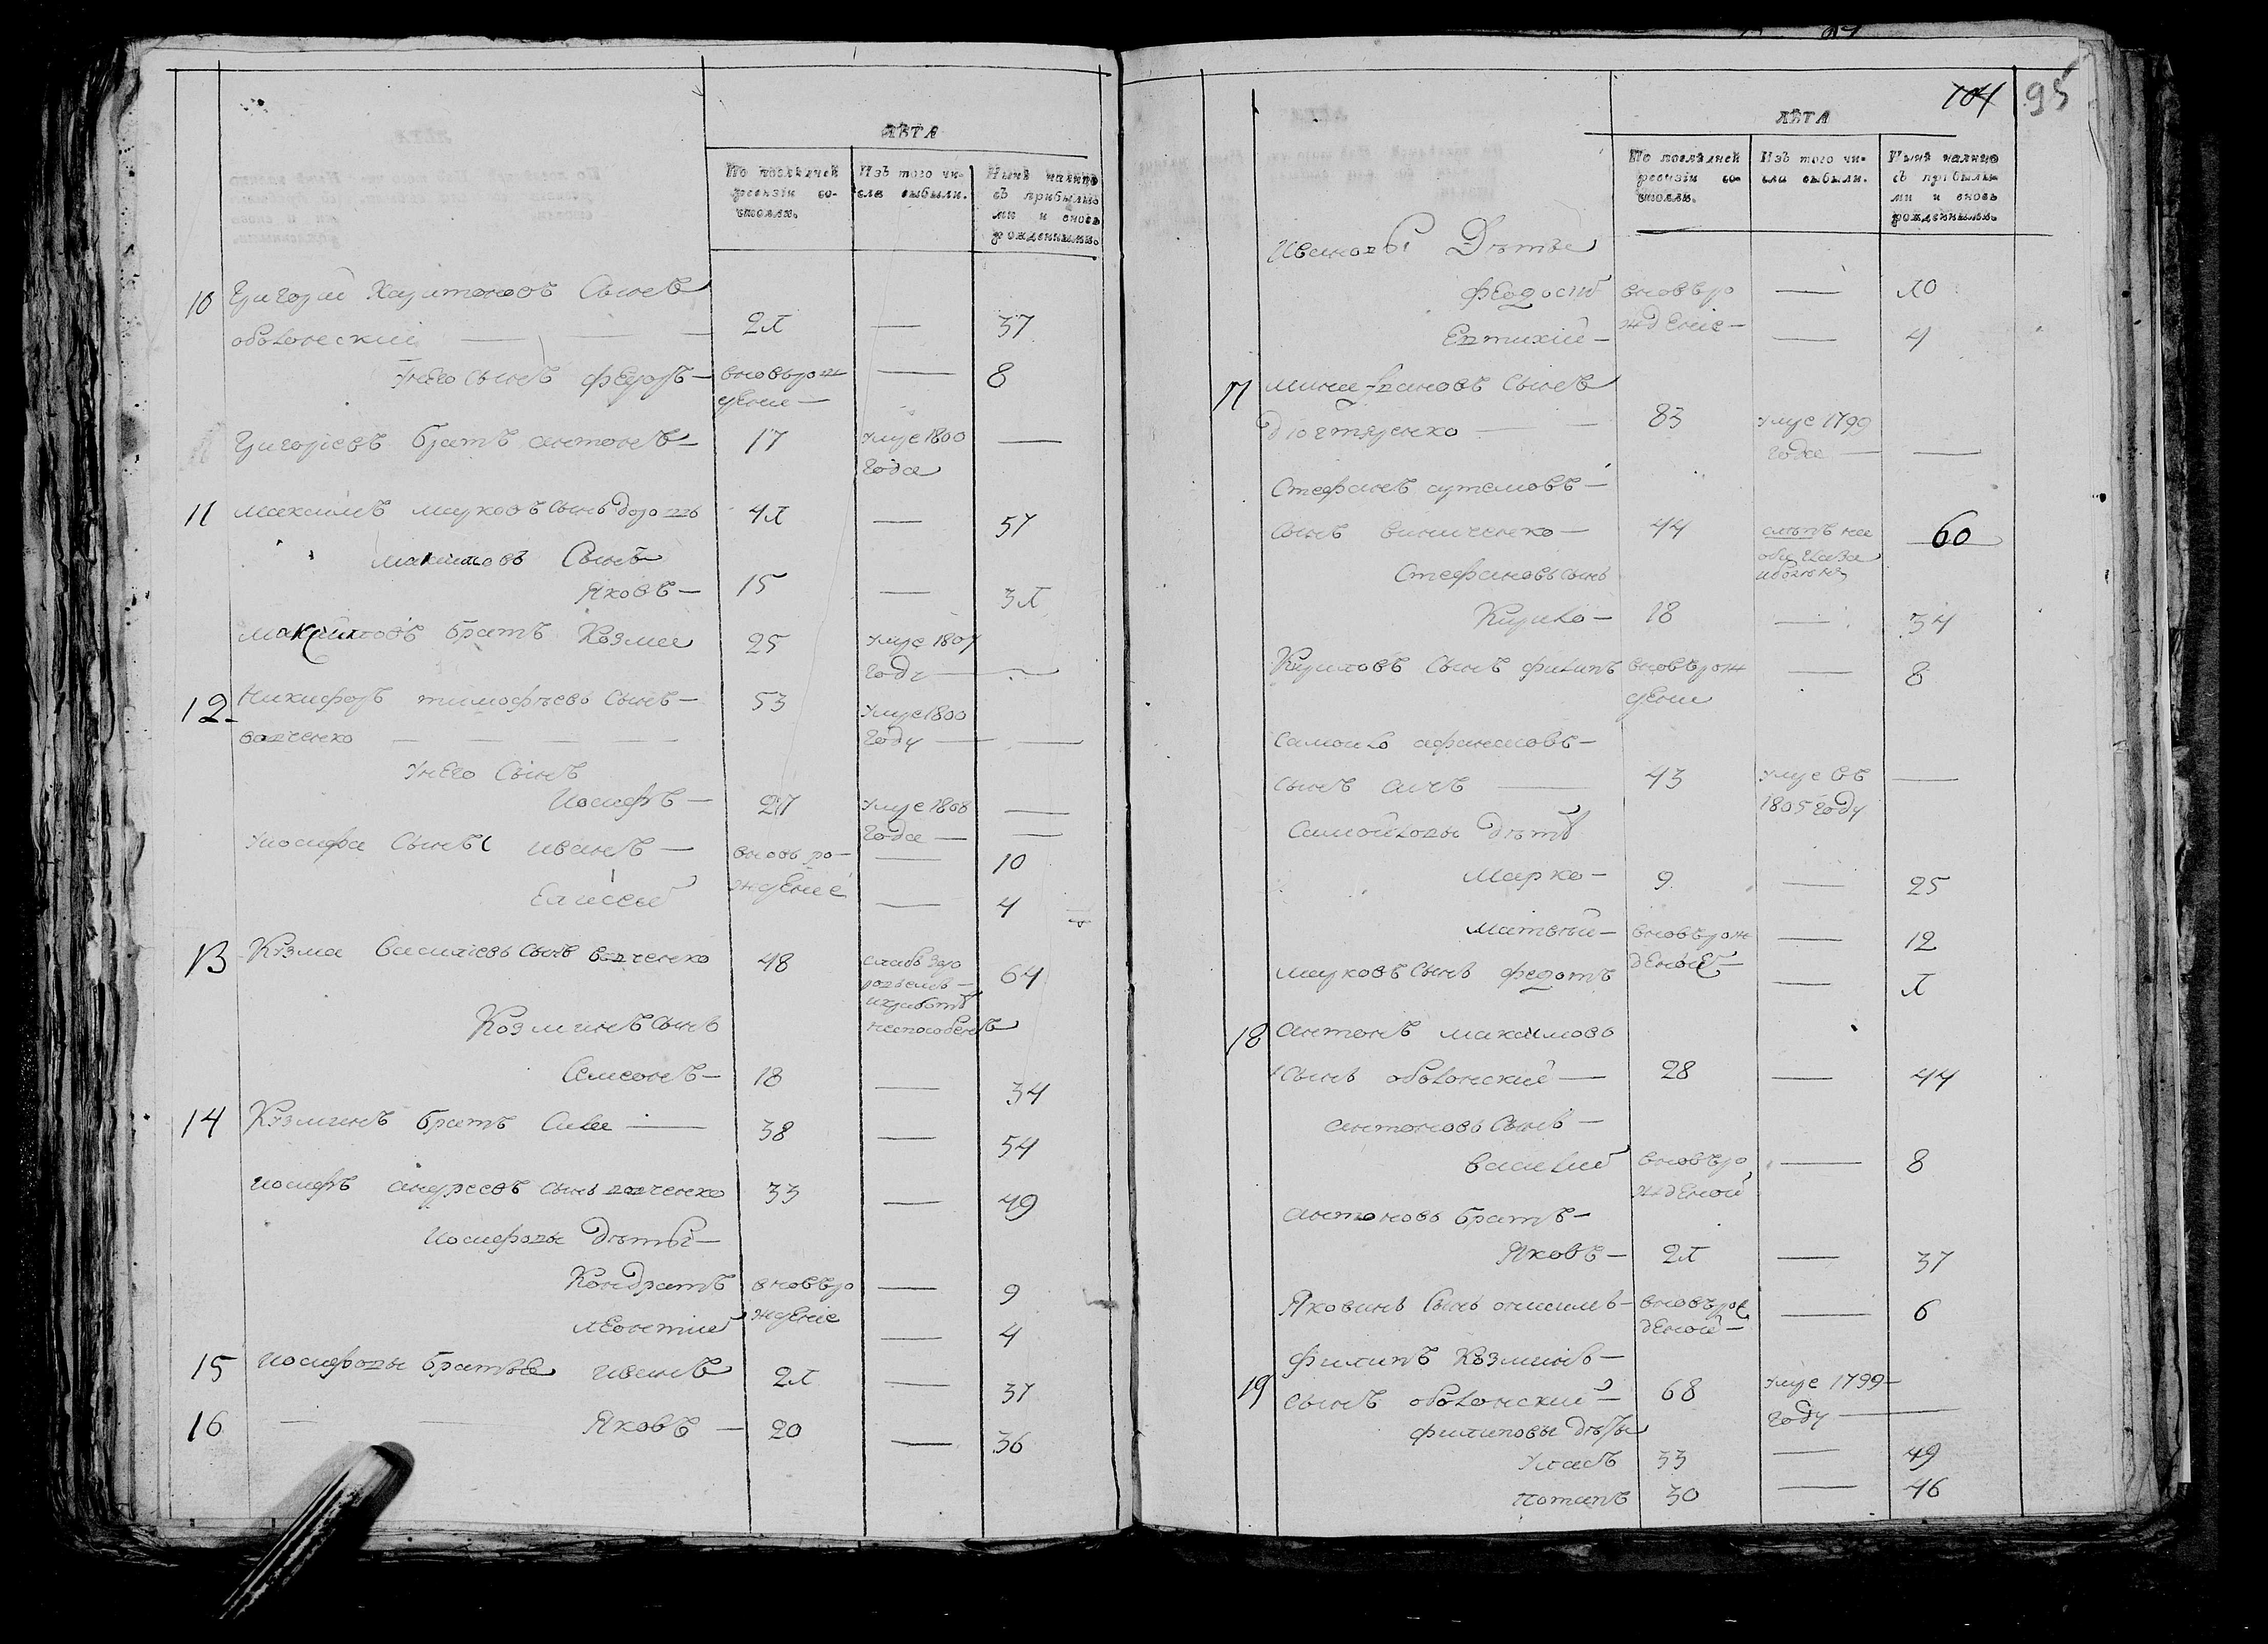 ЛѢТА
По послѣдней ревизіи состояли.
Изъ того числа выбыли.
Нынѣ налицо съ прибылыми и вновь рожденными.
10 Григорий Харитоновъ Сынъ
оболонский — 21 — 37
У него сынъ федоръ — вновьрож — 8
дени —
Григориевъ братъ антонъ — 17 умре 1800 —
года
11 максимъ марковъ сынъ 41 — 57
максимовъ Сынъ
Яковъ — 15 — 31
максимовъ братъ Козма 25 умре 1807
году —
12 Никифоръ тимофѣевъ сынъ — 53 умре 1800
вовченко — году —
У него Сынъ
Иосифъ — 27 умре 1808 —
года —
Уиосифа Сынъ иванъ — вновь ро — 10
ждение
Елисей — 4
13 Козма василиевъ сынъ вовченко 48 слабъ здо 64
ровьемъ —
неспособенъ
Козминъ сынъ
Семионъ — 18 — 34
14 Козминъ братъ Сава — 38 — 54
иосифъ андреевъ сынъ вовченко 33 — 49
Иосифовы дѣты —
Кондратъ вновьро — 9
ждение
леонтий — 4
15 иосифовы братья иванъ 21 — 37
16 — Яковъ — 20 — 36
104 95
ЛѢТА
По послѣдней ревизіи состояли.
Изъ того числа выбыли.
Нынѣ налицо съ прибылыми и вновь рожденными.
Ивановы Дѣты
феодосий вновьро — 10
ждение —
Евтихий — — 4
17 мина сынъ
дюгтяренко — 83 умре 1799
года — —
Стефанъ артемовъ —
сынъ виниченко — 44 слѣпъ на 60
оби глаза
Стефановъ сынъ
Кирило — 18 — 34
Кириловъ сынъ филипъ вновьрож — 8
дени
самоило афанасовъ —
сынъ сичъ — 43 умре въ —
1805 году
Самойловы дѣты
Марко — 9 — 25
матвѣй — вновьрож — 12
деные —
марковъ сынъ федотъ — 1
18 антонъ максимовъ
Сынъ оболонский — 28 — 44
антоновъ Сынъ —
василий вновьро — 8
жденой
антоновъ братъ —
Яковъ — 21 — 37
Яковинъ Сынъ онисимъ — вновьрож — 6
деной —
филипъ Козминъ —
19 сынъ оболонский — 68 умре 1799 —
году —
филиповы дѣты
Уласъ 33 — 49
потапъ 30 — 46